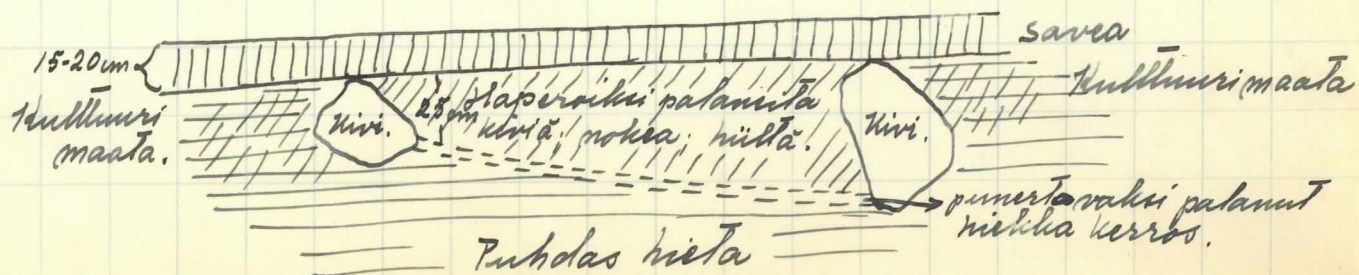 savea
15-20 cm
Kulttuuri maata
Kulttuuri
maata.
Kivi.
25 cm
Haperoiksi palaneita
kiviä; nokea; hiiltä.
Kivi.
punertavaksi palanut
hiekka kerros.
Puhdas hieta